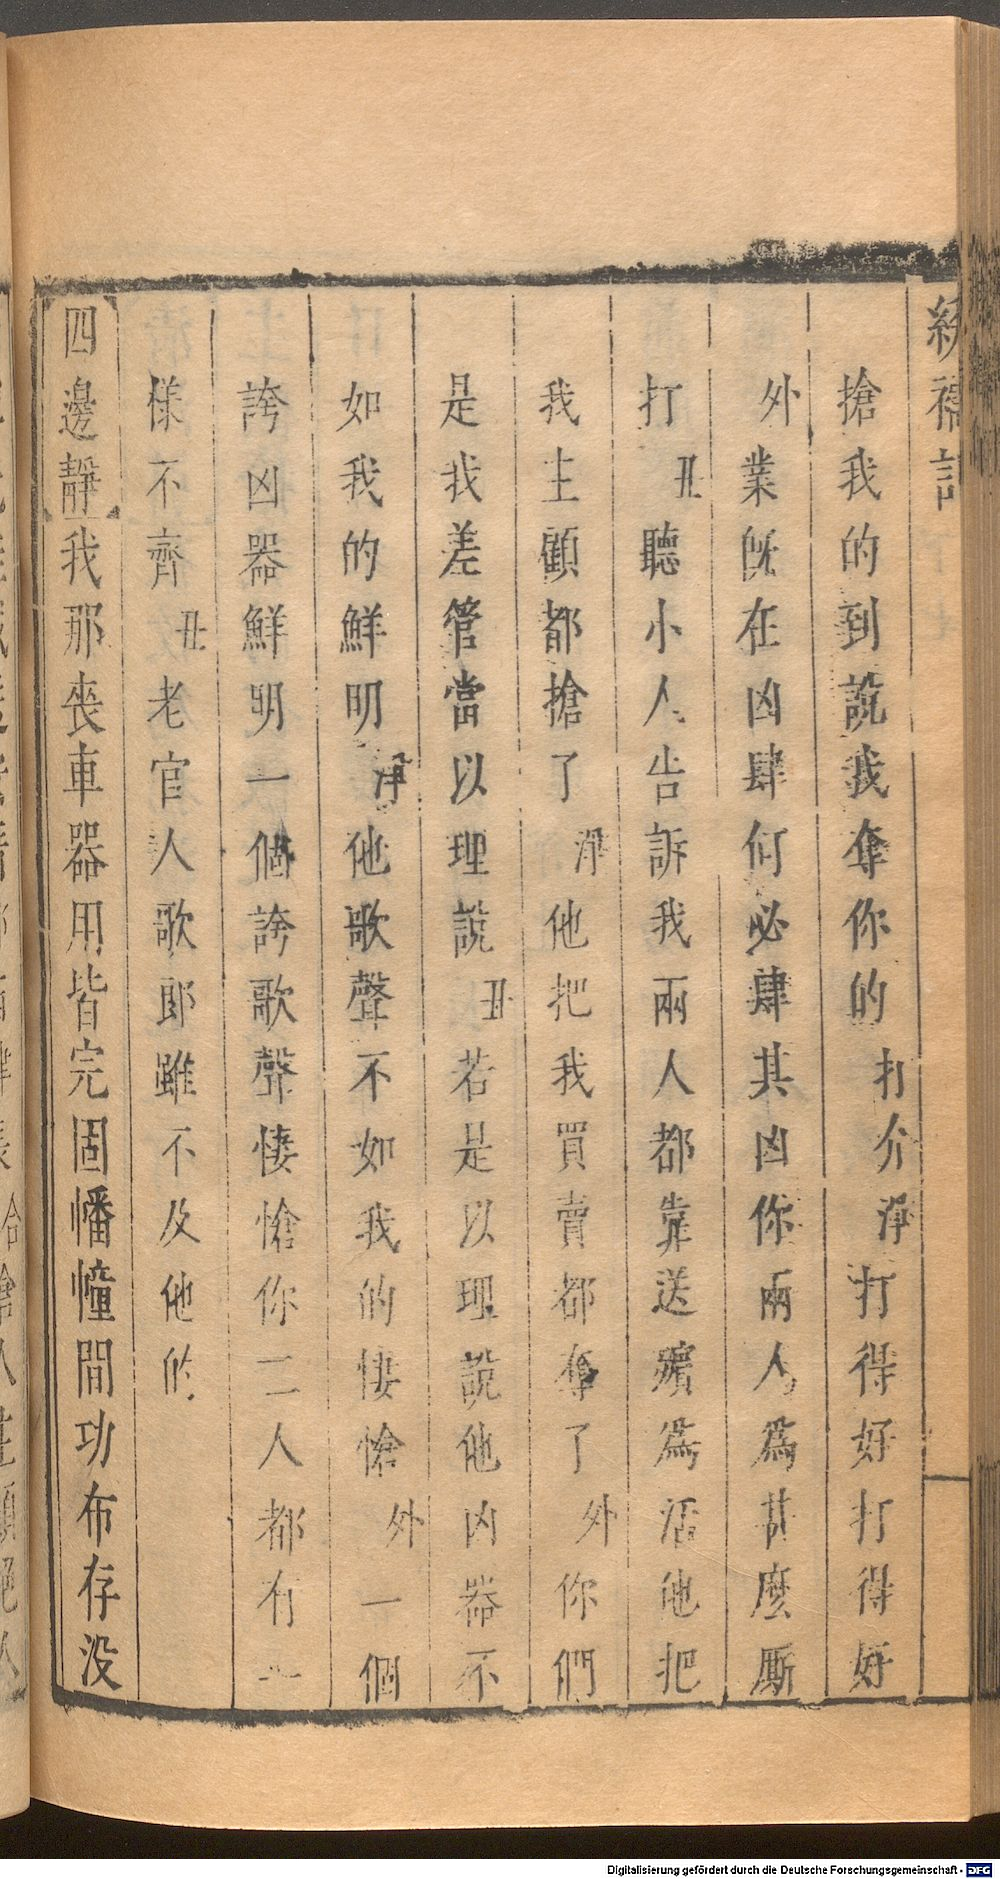 繡襦記
搶我的到說我奪你的 打介 淨 打得好打得好
外 業旣在凶肆何必肆其凶你兩人爲甚麼厮
打 丑 聽小人告訴我兩人都靠送殯爲活他把
我主顧都搶了 淨 他把我買賣都奪了 外 你們
是我差管當以理說 丑 若是以理說他凶器不
如我的鮮明 淨 他歌聲不如我的悽愴 外 一個
誇凶器鮮明一個誇歌聲悽愴你二人都有一
樣不齊 丑 老官人歌郎雖不及他的
四邊靜 我那喪車器用皆完固幡幢間功布存没
Digitalisierung gefördert durch die Deutsche Forschungsgemeinschaft - DFG